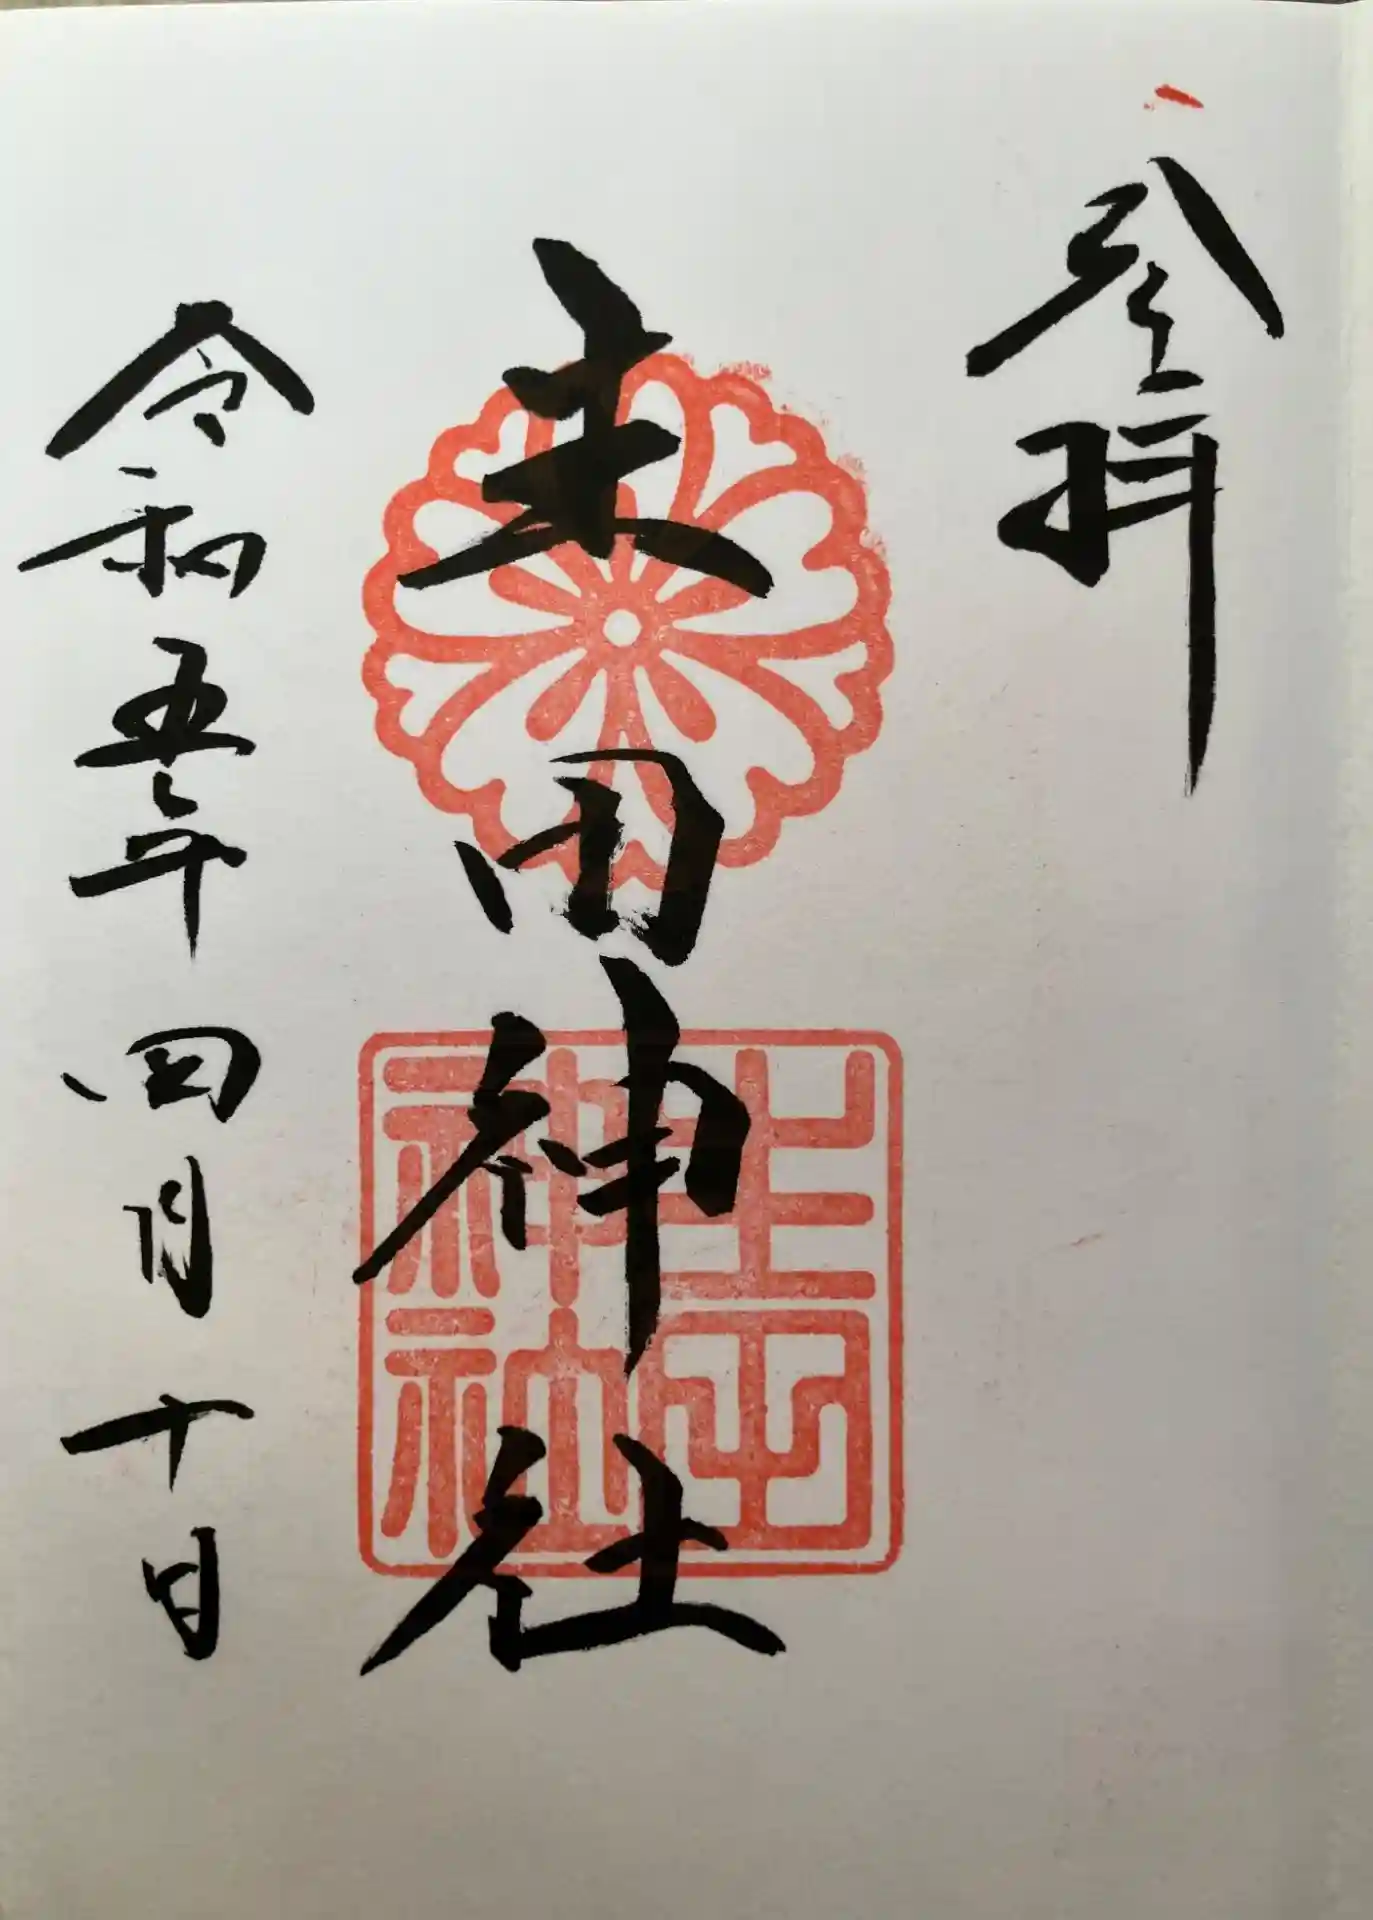 登拝
生田神社
令和五年四月十日
生田
神社